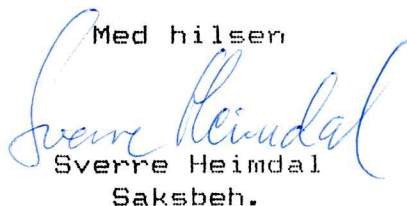 Med hilsen
Sverre Heimdal
Sverre Heimdal
Saksbeh.